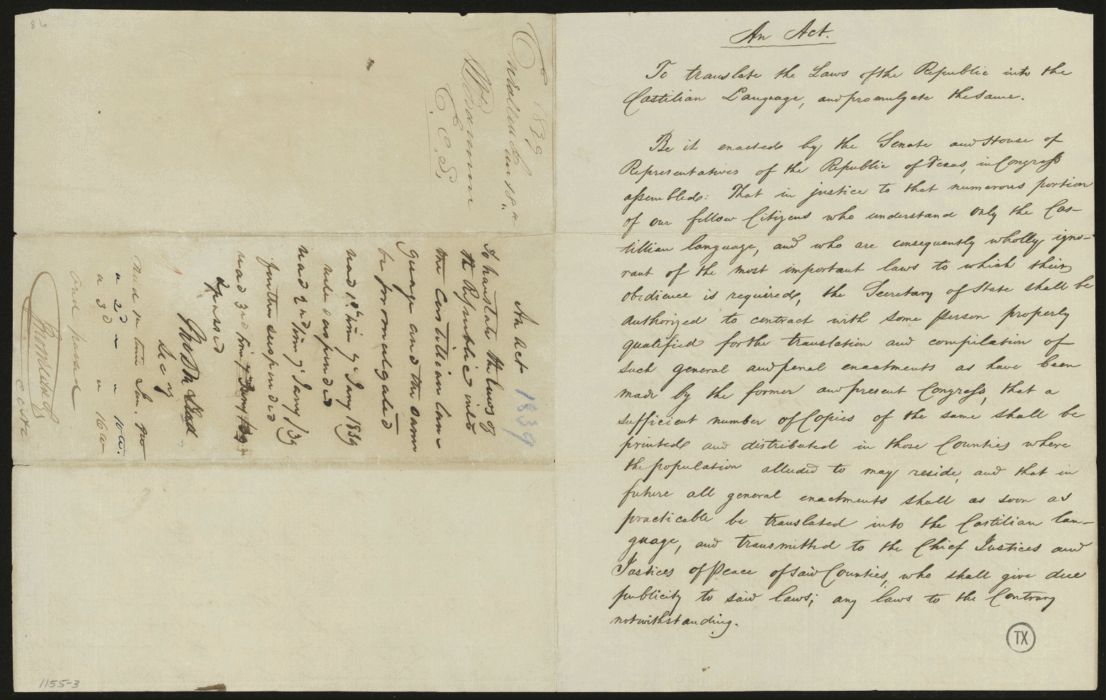 86
1839
Enrolled Jan 18th
E. C. S.
An act 1839
To translate the laws of
the Republic into
the Castilian lan-
guage and the same
be promulgated
read 1st time 9 Jany 1839
rule suspended
read 2nd time 9 Jany /39
further suspended
read 3rd time 9 Jany 1839
& passed
Secy
Read 1st time Jan.
" 2d " " 10th.
" 3d " " 16th
and passed
1155-3
An Act.
To translate the Laws of the Republic into the
Castilian Language, and promulgate the same.
Be it enacted by the Senate and House of
Representatives of the Republic of Texas, in Congress
assembled: That in justice to that numerous portion
of our fellow Citizens who understand only the Cas-
tillian language, and who are consequently wholly igno-
rant of the most important laws to which their
obedience is required, the Secretary of State shall be
authorized to contract with some person properly
qualified for the translation and compilation of
such general and penal enactments as have been
made by the former and present Congress, that a
sufficient number of Copies of the same shall be
printed and distributed in those Counties where
the population alluded to may reside, and that in
future all general enactments shall as soon as
practicable be translated into the Castilian lan-
guage, and transmitted to the Chief Justices and
Justices of Peace of said Counties, who shall give due
publicity to said laws; any laws to the Contrary
notwithstanding.
TX